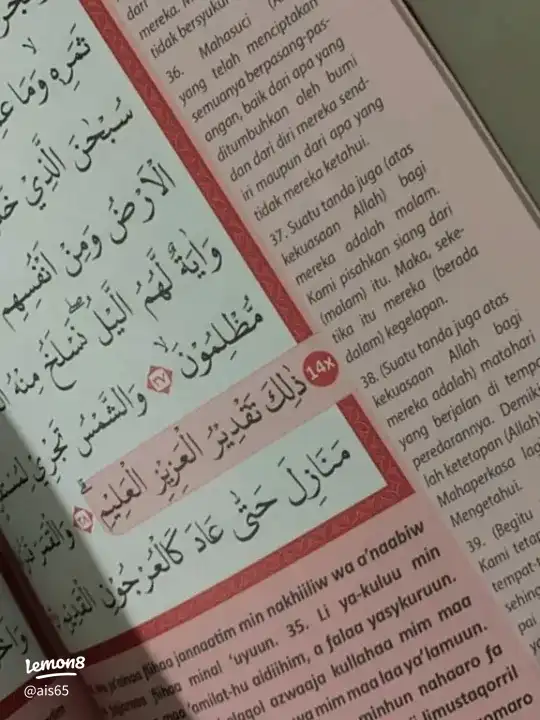 ثَمَرِهٖ وَمَا
سُبْحٰنَ الَّذِيْ
الْاَرْضُ وَمِنْ اَنْفُسِهِمْ
وَاٰيَةٌ لَّهُمُ الَّيْلُ نَسْلَخُ مِنْهُ
مُّظْلِمُوْنَ ۙ ٣٧ وَالشَّمْسُ تَجْرِيْ
ذٰلِكَ تَقْدِيْرُ الْعَزِيْزِ الْعَلِيْمِ ۗ ٣٨
14x
مَنَازِلَ حَتّٰى عَادَ كَالْعُرْجُوْنِ الْقَدِيْمِ
dari
mereka.
tidak bersyukur
36. Mahasuci
yang telah menciptakan
semuanya berpasang-pas-
angan, baik dari apa yang
ditumbuhkan oleh bumi
dan dari diri mereka send-
iri maupun dari apa yang
tidak mereka ketahui.
37. Suatu tanda juga (atas
kekuasaan Allah) bagi
mereka adalah malam.
Kami pisahkan siang dari
(malam) itu. Maka, seke-
tika itu mereka (berada
dalam) kegelapan.
38. (Suatu tanda juga atas
kekuasaan Allah bagi
mereka adalah) matahari
yang berjalan di tempa
peredarannya. Demiki
lah ketetapan (Allah)
Mahaperkasa lagi
Mengetahui.
39. (Begitu
Kami tetap
tempat-t
sehing
pai
fiihaa jannaatim min nakhiiliw wa a'naabiw
fiihaa minal 'uyuun. 35. Li ya-kuluu min
'amilat-hu aidiihim, a falaa yasykuruun.
azwaaja kullahaa mim maa
wa mim maa laa ya'lamuun.
minhun nahaaro fa
limustaqorril
Lemon8
@ais65